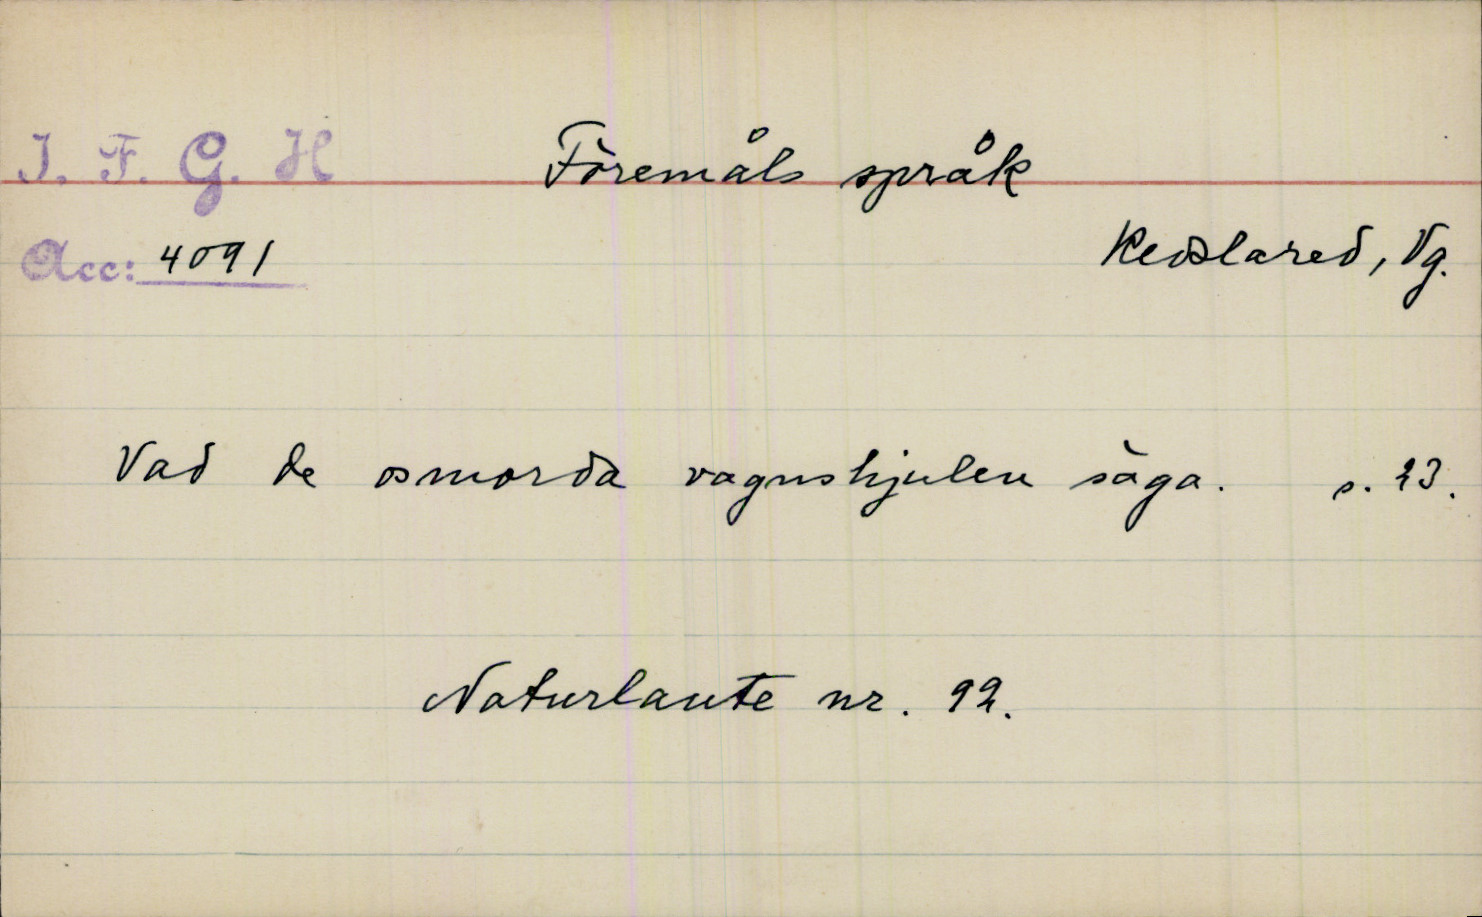 I. F. G. H
Föremåls språk
Acc: 4091
Redslared, Vg.
Vad de osmorda vagnshjulen säga. s. 23.
Naturlaute nr. 92.